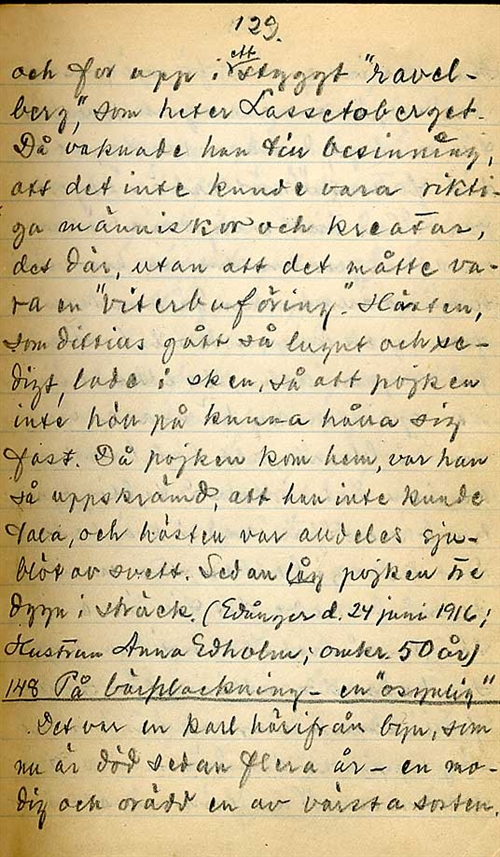 129.
och for upp i ett styggt "ravel-
berg", som heter Lassetoberget.
Då vaknade han till besinning,
att det inte kunde vara rikti-
ga människor och kreatur,
det där, utan att det måtte va-
ra en "viterbuföring". Hästen,
som dittius gått så lugnt och se-
digt, lade i sken, så att pojken
inte höll på kunna hålla sig
fast. Då pojken kom hem, var han
så uppskrämd, att han inte kunde
tala, och hästen var alldeles sju-
blöt av svett. Sedan låg pojken tre
dygn i sträck. (Edånger d. 24 juni 1916;
Hustrun Anna Edholm; omkr. 50 år)
148 På bärplockning – en "osynlig"
Det var en karl härifrån byn, som
nu är död sedan flera år – en mo-
dig och orädd en av värsta sorten.